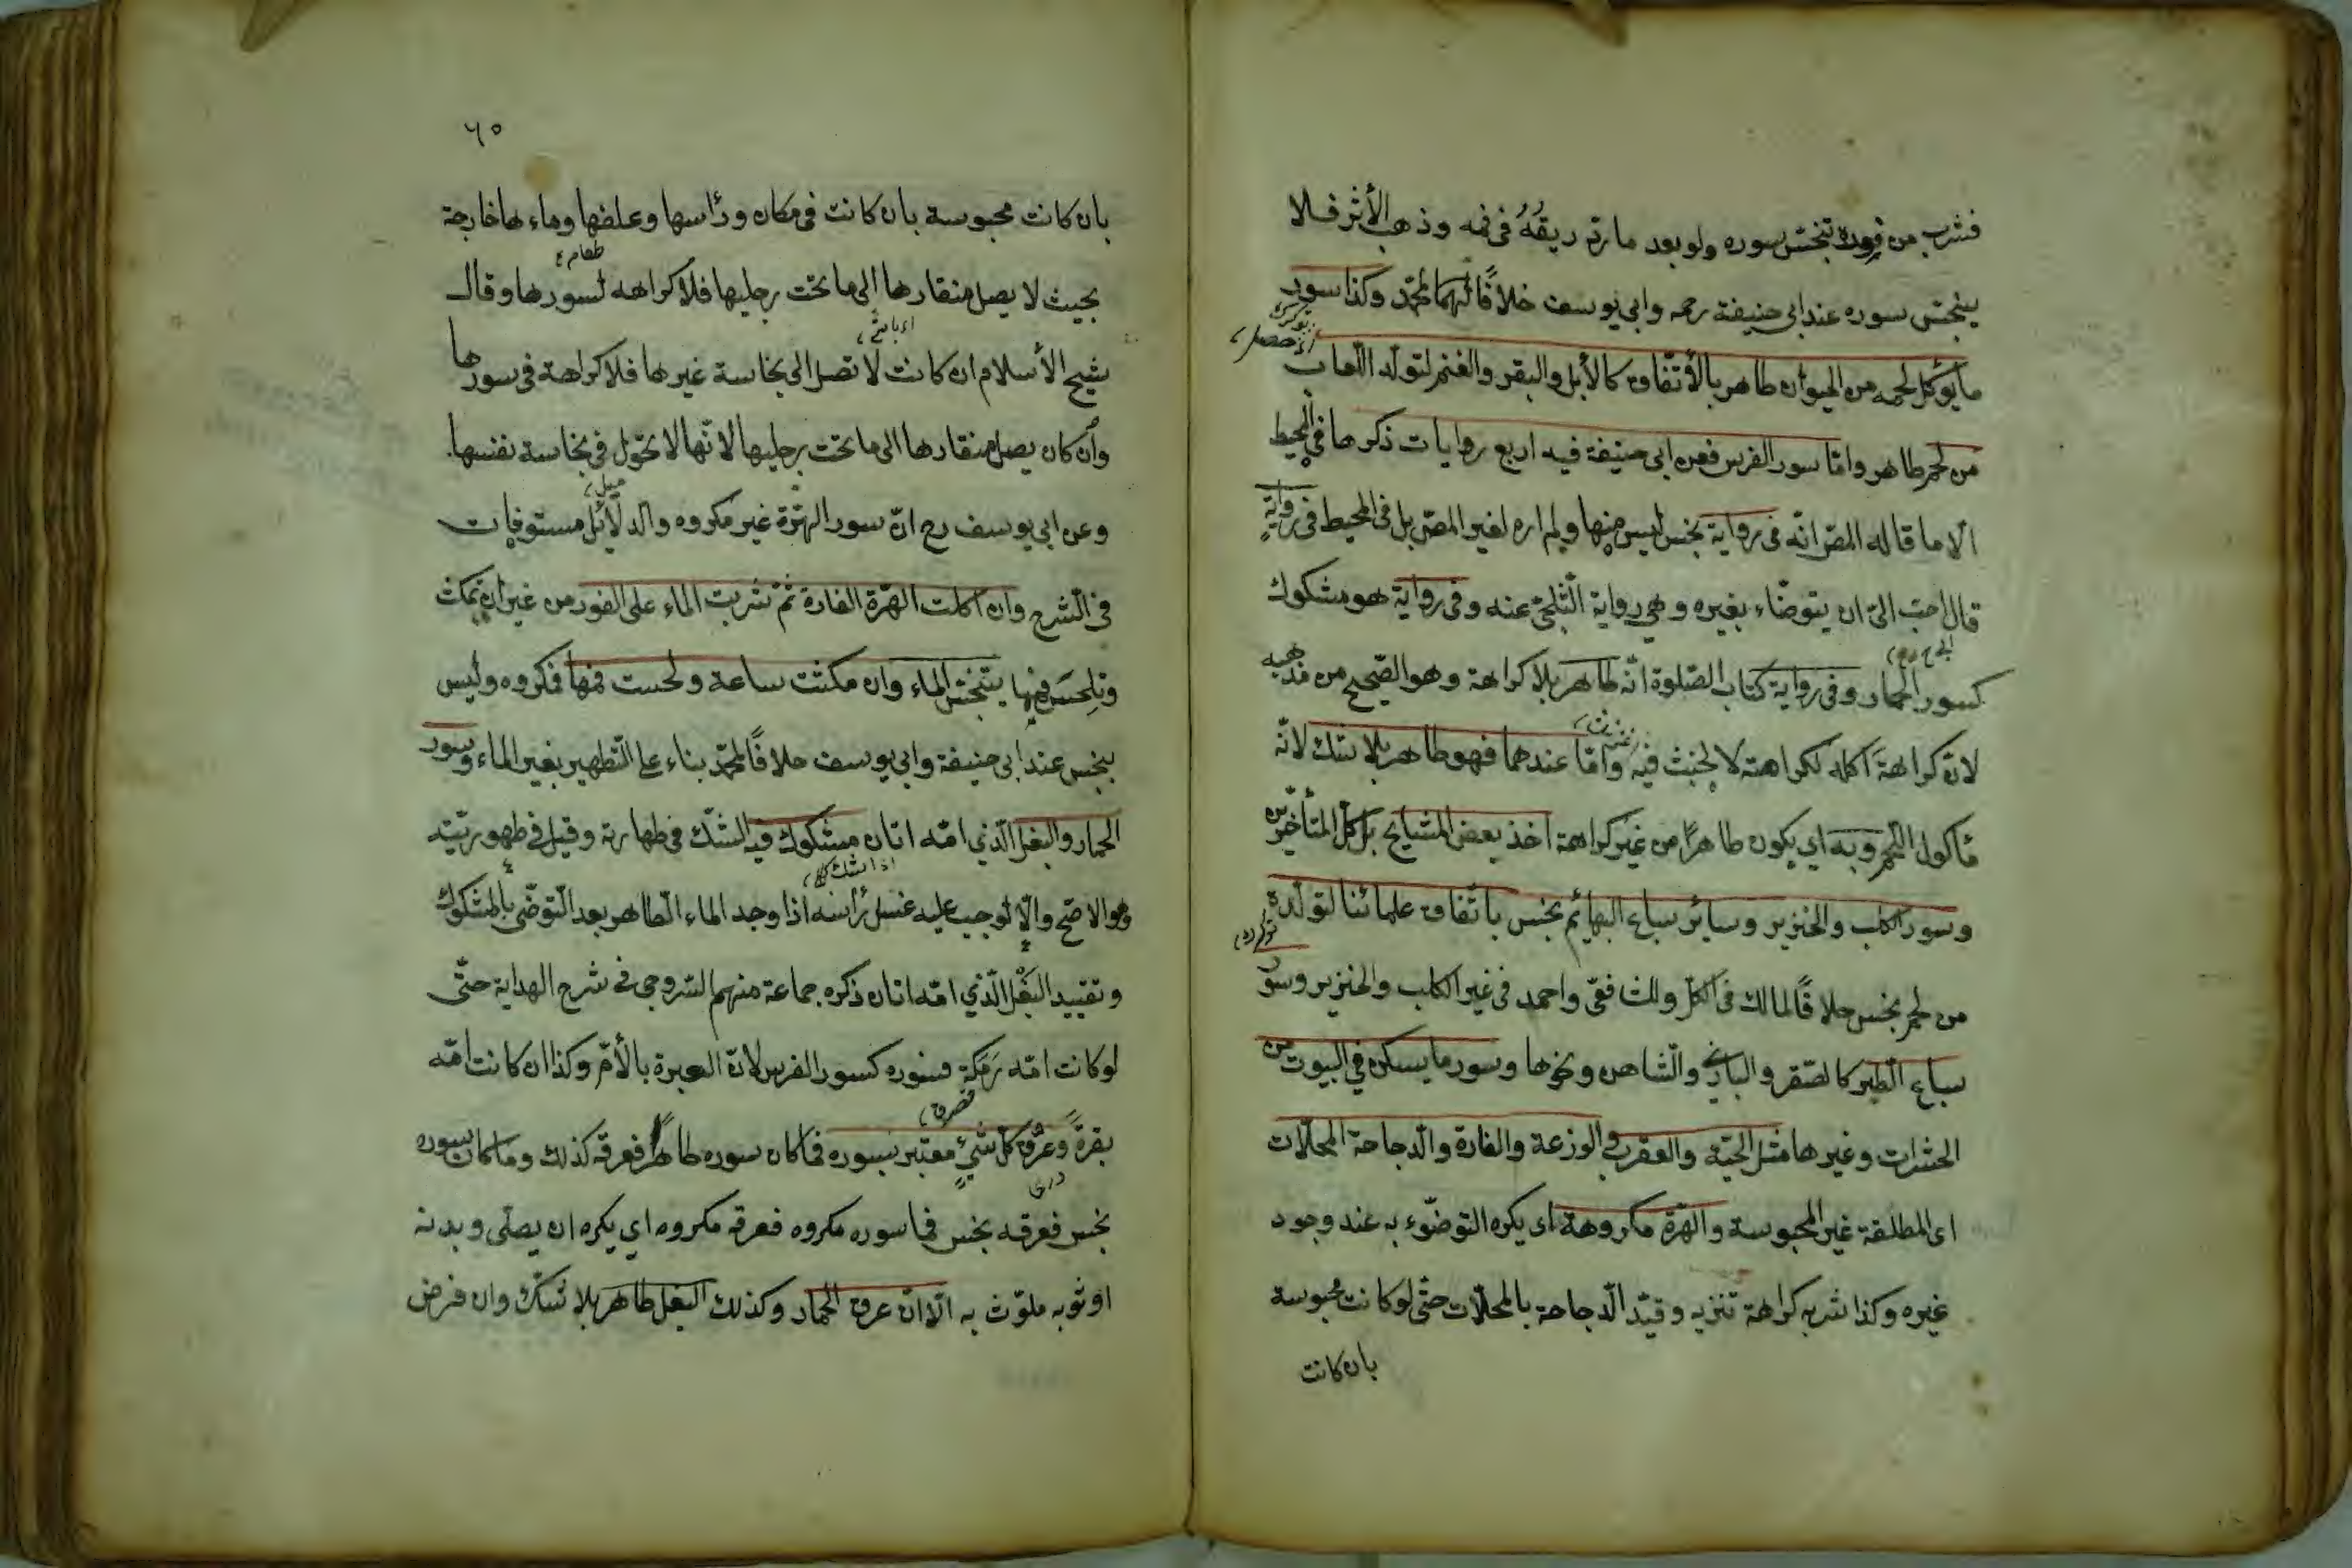 فشرب من فوره تنجس سوره ولو بعد ما ردّ ريقُهُ في فمه وذهب الأثر فلا
ينجس سوره عند ابى حنيفة رحمه وابي يوسف خلافًا لمحمّد وكذا سور
ما يؤكل لحمه من الحيوان طاهر بالأتّفاق كالأبل والبقر والغنم لتولّد اللّعاب
من لحم طاهر وامّا سور الفرس فعن ابى حنيفة فيه اربع روايات ذكرها في المحيط
الّا ما قاله المصّ انّه فى رواية نجس ليس منها ولم اره لغير المصّ بل فى المحيط فى رواية
قال احبّ الىّ ان يتوضّاء بغيره وهي رواية الثّلجىّ عنه وفى رواية هو مشكوك
كسور الحمار وفى رواية كتاب الصّلوة انّه طاهر بلا كراهة وهو الصّحيح من مذهبه
لانّ كراهة اكله لكرامته لا لخبث فيه وامّا عندهما فهو طاهر بلا شكّ لانّه
مأكول اللّحم وبه اي يكون طاهرًا من غير كراهة اخذ بعض المشايخ بل كلّ المتأخّرين
وسور الكلب والخنزير وسائر سباع البهائم نجس باتّفاق علمائنا لتولّده
من لحم نجس خلافًا لمالك فى الكلّ وللشافعّى واحمد فى غير الكلب والخنزير وسور
سباع الطّير كالصّقر والبازي والشّاهين ونحوها وسور ما يسكن في البيوت من
الحشرات وغيرها مثل الحيّة والعقرب والوزغة والفارة والدّجاجة المخلّات
اى المطلقة غير المحبوسة والهرّة مكروهة اى يكره التوضّوء به عند وجود
غيره وكذا شربه كراهة تنزيه وقيّد الدّجاجة بالمخلّات حتّى لو كانت محبوسة
بان كانت
٦٠
بان كانت محبوسة بان كانت فى مكان ورأسها وعلفها وماءها خارجة
بحيث لا يصل منقارها الى ما تحت رجليها فلا كراهه لسورها وقال
شيخ الأسلام ان كانت لا تصل الى نجاسة غيرها فلا كراهة فى سورها
وان كان يصل منقارها الى ما تحت رجليها لانّها لا تجول فى نجاسة نفسها
وعن ابى يوسف رح انّ سور الهرّة غير مكروه والدّلائل مستوفيات
فى الشّرح وان اكلت الهرّة الفارة ثمّ شربت الماء على الفور من غير ان تمكث
وتلحس فمها يتنجّس الماء وان مكثت ساعة ولحست فمها فمكروه وليس
بنجس عند ابى حنيفة وابي يوسف خلافًا لمحمّد بناء على التّطهير بغير الماء وسور
الحمار والبغل الّذي امّه اتان مشكوك فيه الشّكّ فى طهارته وقيل فى طهوريّته
وهو الاصحّ والّا لوجب عليه غسل رأسه اذا وجد الماء الطّاهر بعد التّوضّى بالمشكوك
وتقييد البَغْل الّذي امّه اتان ذكره جماعة منهم السّروجى فى شرح الهداية حتّى
لو كانت امّه رَمَكَة فسوره كسور الفرس لانّ العبرة بالأمّ وكذا ان كانت امّه
بقرةً وعَرَق كلّ شئٍ معتبر بسوره فما كان سوره طاهرًا فعرقه كذلك وما كان سوره
نجس فعرقه نجس فما سوره مكروه فعرقه مكروه اي يكره ان يصلّى وبدنه
او ثوبه ملوّث به الّا انّ عرق الحمار وكذلك البغل طاهر بلا شكّ وان فرض